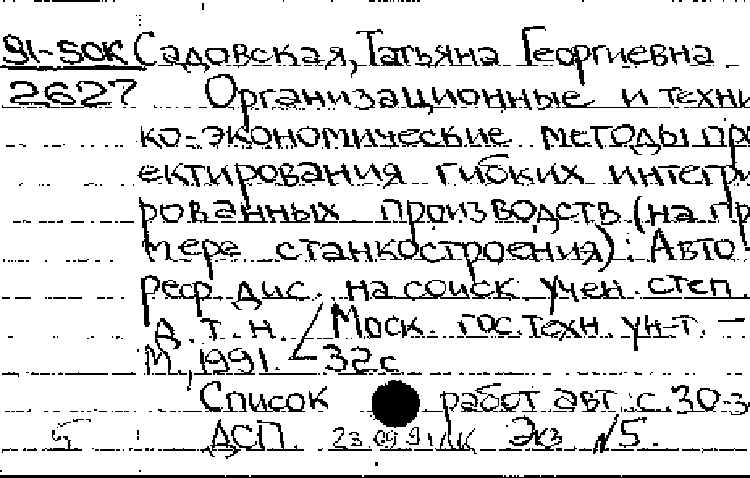 91-50К Садовская, Татьяна Георгиевна
2627 Организационные и техни
ко-экономические методы про
ектирования гибких интегри
рованных производств (на при
мере станкостроения): Авто
реф. дис. на соиск. учен. степ.
д.т.н. / Моск. гос. техн. ун-т. –
М., 1991. – 32 с.
Список работ авт.: с. 30-3
5 ДСП. 23.09.91 Экз №5.